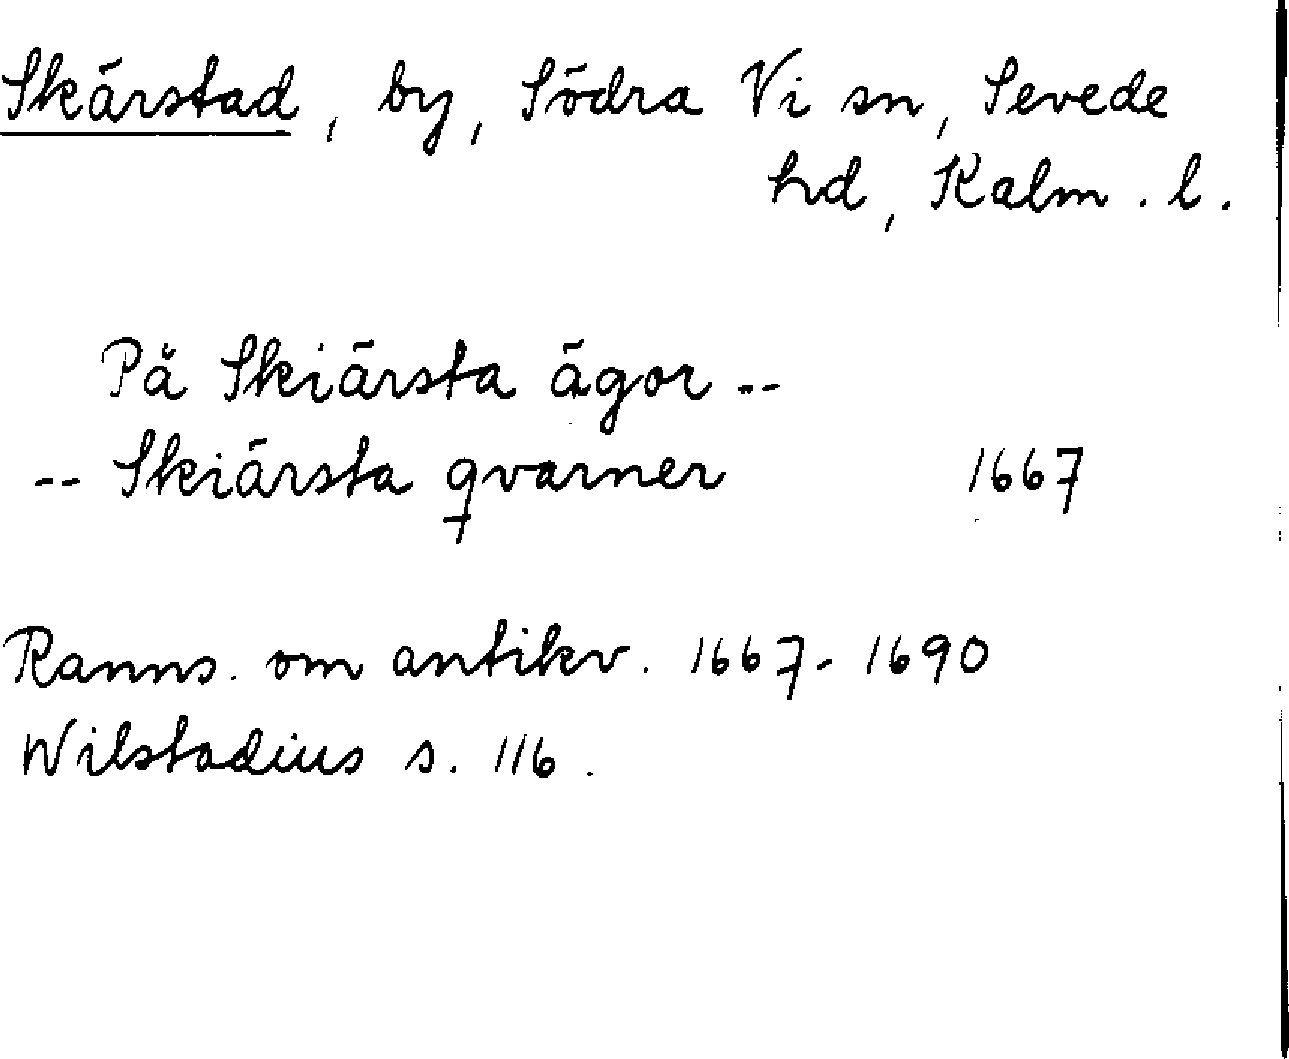 Skärstad, by, Södra Vi sn, Sevede
hd, Kalm. l.
På Skiärsta ägor --
-- Skiärsta qvarner 1667
Ranns. om antikv. 1667-1690
Wilstadius s. 116.